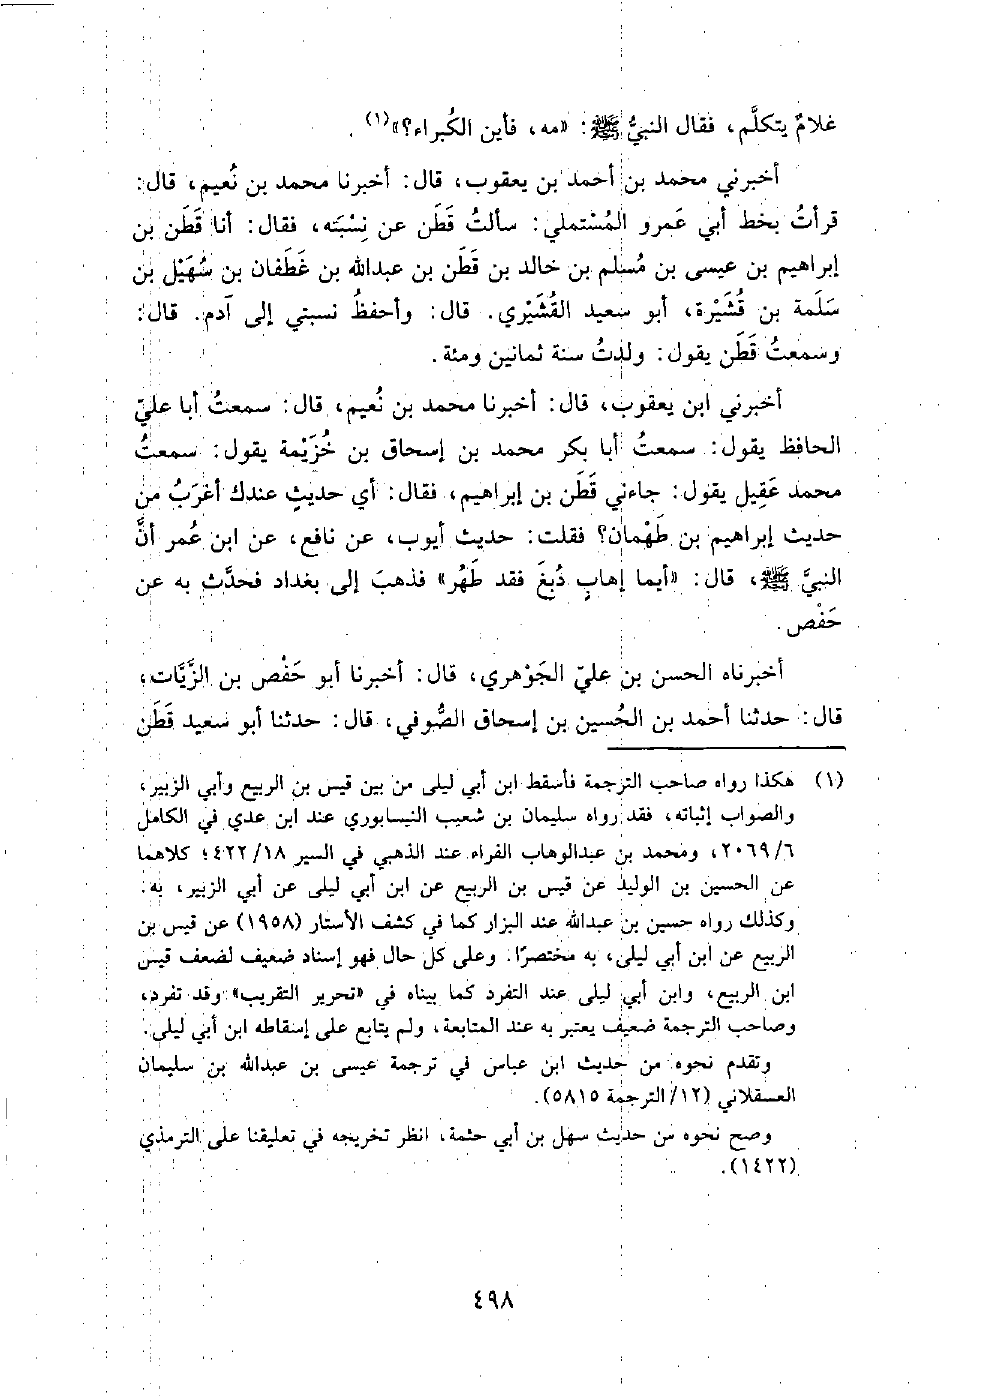 غلامٌ يتكلَّم، فقال النبيُّ ﷺ: «مه، فأين الكُبراء؟»(١).
أخبرني محمد بن أحمد بن يعقوب، قال: أخبرنا محمد بن نُعيم، قال:
قرأتُ بخط أبي عَمرو المُسْتملي: سألتُ قَطَن عن نِسْبَته، فقال: أنا قَطَن بن
إبراهيم بن عيسى بن مُسلم بن خالد بن قَطَن بن عبدالله بن غَطَفان بن سُهَيْل بن
سَلَمة بن قُشَيْرة، أبو سعيد القُشَيْري. قال: وأحفظُ نسبتي إلى آدم. قال:
وسمعتُ قَطَن يقول: ولدتُ سنة ثمانين ومئة.
أخبرني ابن يعقوب، قال: أخبرنا محمد بن نُعيم، قال: سمعتُ أبا عليّ
الحافظ يقول: سمعتُ أبا بكر محمد بن إسحاق بن خُزَيْمة يقول: سمعتُ
محمد عَقِيل يقول: جاءني قَطَن بن إبراهيم، فقال: أي حديثٍ عندك أغرَبُ من
حديث إبراهيم بن طَهْمان؟ فقلت: حديث أيوب، عن نافع، عن ابن عُمر أنَّ
النبيَّ ﷺ، قال: «أيما إهابٍ دُبغَ فقد طَهُر» فذهبَ إلى بغداد فحدَّث به عن
حَفْص.
أخبرناه الحسن بن عليّ الجَوْهري، قال: أخبرنا أبو حَفْص بن الزَّيَّات،
قال: حدثنا أحمد بن الحُسين بن إسحاق الصُّوفي، قال: حدثنا أبو سعيد قَطَن
(١) هكذا رواه صاحب الترجمة فأسقط ابن أبي ليلى من بين قيس بن الربيع وأبي الزبير،
والصواب إثباته، فقد رواه سليمان بن شعيب النيسابوري عند ابن عدي في الكامل
٦/ ٢٠٦٩، ومحمد بن عبدالوهاب الفراء عند الذهبي في السير ١٨/ ٤٢٢؛ كلاهما
عن الحسين بن الوليد عن قيس بن الربيع عن ابن أبي ليلى عن أبي الزبير، به.
وكذلك رواه حسين بن عبدالله عند البزار كما في كشف الأستار (١٩٥٨) عن قيس بن
الربيع عن ابن أبي ليلى، به مختصرًا. وعلى كل حال فهو إسناد ضعيف لضعف قيس
ابن الربيع، وابن أبي ليلى عند التفرد كما بيناه في «تحرير التقريب» وقد تفرد،
وصاحب الترجمة ضعيف يعتبر به عند المتابعة، ولم يتابع على إسقاطه ابن أبي ليلى.
وتقدم نحوه من حديث ابن عباس في ترجمة عيسى بن عبدالله بن سليمان
العسقلاني (١٢/ الترجمة ٥٨١٥).
وصح نحوه من حديث سهل بن أبي حثمة، انظر تخريجه في تعليقنا على الترمذي
(١٤٢٢).
٤٩٨